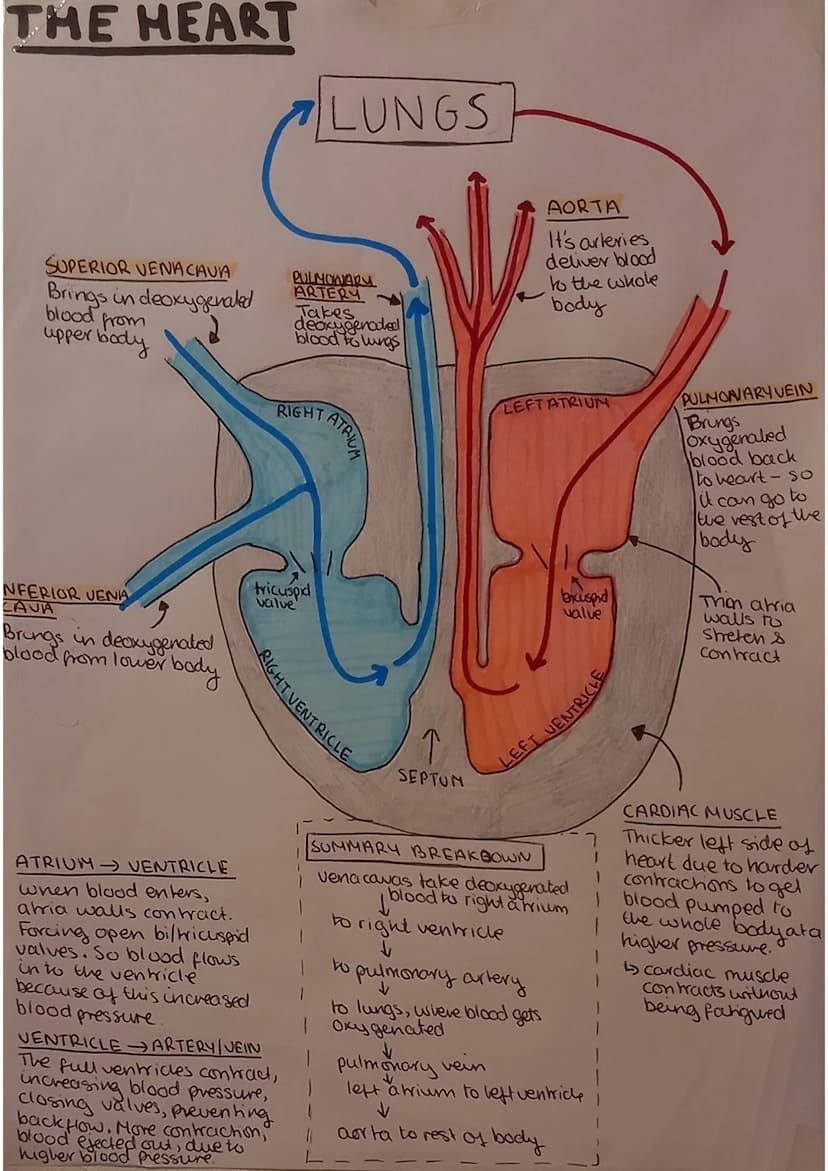 THE HEART
LUNGS
SUPERIOR VENA CAVA
Brings in deoxygenated
blood from
upper body
PULMONARY
ARTERY
Takes
deoxygenated
blood to lungs
AORTA
It's arteries
deliver blood
to the whole
body
RIGHT ATRIUM
LEFT ATRIUM
PULMONARY VEIN
Brings
oxygenated
blood back
to heart - so
it can go to
the rest of the
body
tricuspid
valve
bicuspid
valve
NFERIOR VENA
CAVA
Brings in deoxygenated
blood from lower body
Thin atria
walls to
stretch &
contract
RIGHT VENTRICLE
LEFT VENTRICLE
SEPTUM
CARDIAC MUSCLE
Thicker left side of
heart due to harder
contractions to get
blood pumped to
the whole body at a
higher pressure.
↳ cardiac muscle
contracts without
being fatigued
ATRIUM → VENTRICLE
when blood enters,
atria walls contract.
Forcing open bi/tricuspid
valves. So blood flows
into the ventricle
because of this increased
blood pressure.
VENTRICLE → ARTERY/VEIN
The full ventricles contract,
increasing blood pressure,
closing valves, preventing
backflow. More contraction,
blood ejected out, due to
higher blood pressure.
SUMMARY BREAKDOWN
venacavas take deoxygenated
blood to right atrium
↓
to right ventricle
↓
to pulmonary artery
↓
to lungs, where blood gets
oxygenated
↓
pulmonary vein
↓
left atrium to left ventricle
↓
aorta to rest of body